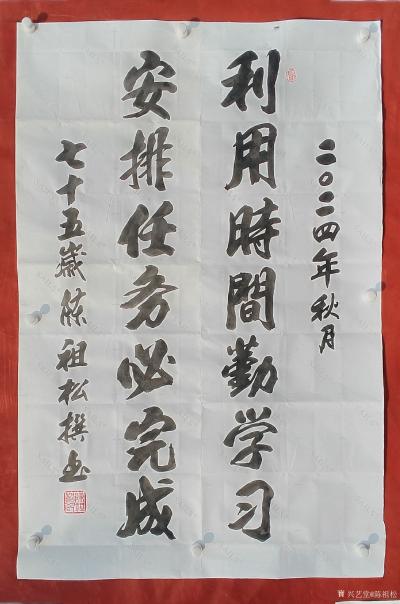 二〇二四年秋月
利用時間勤学习
安排任务必完成
七十五歲陈祖松撰书
兴艺堂@陈祖松